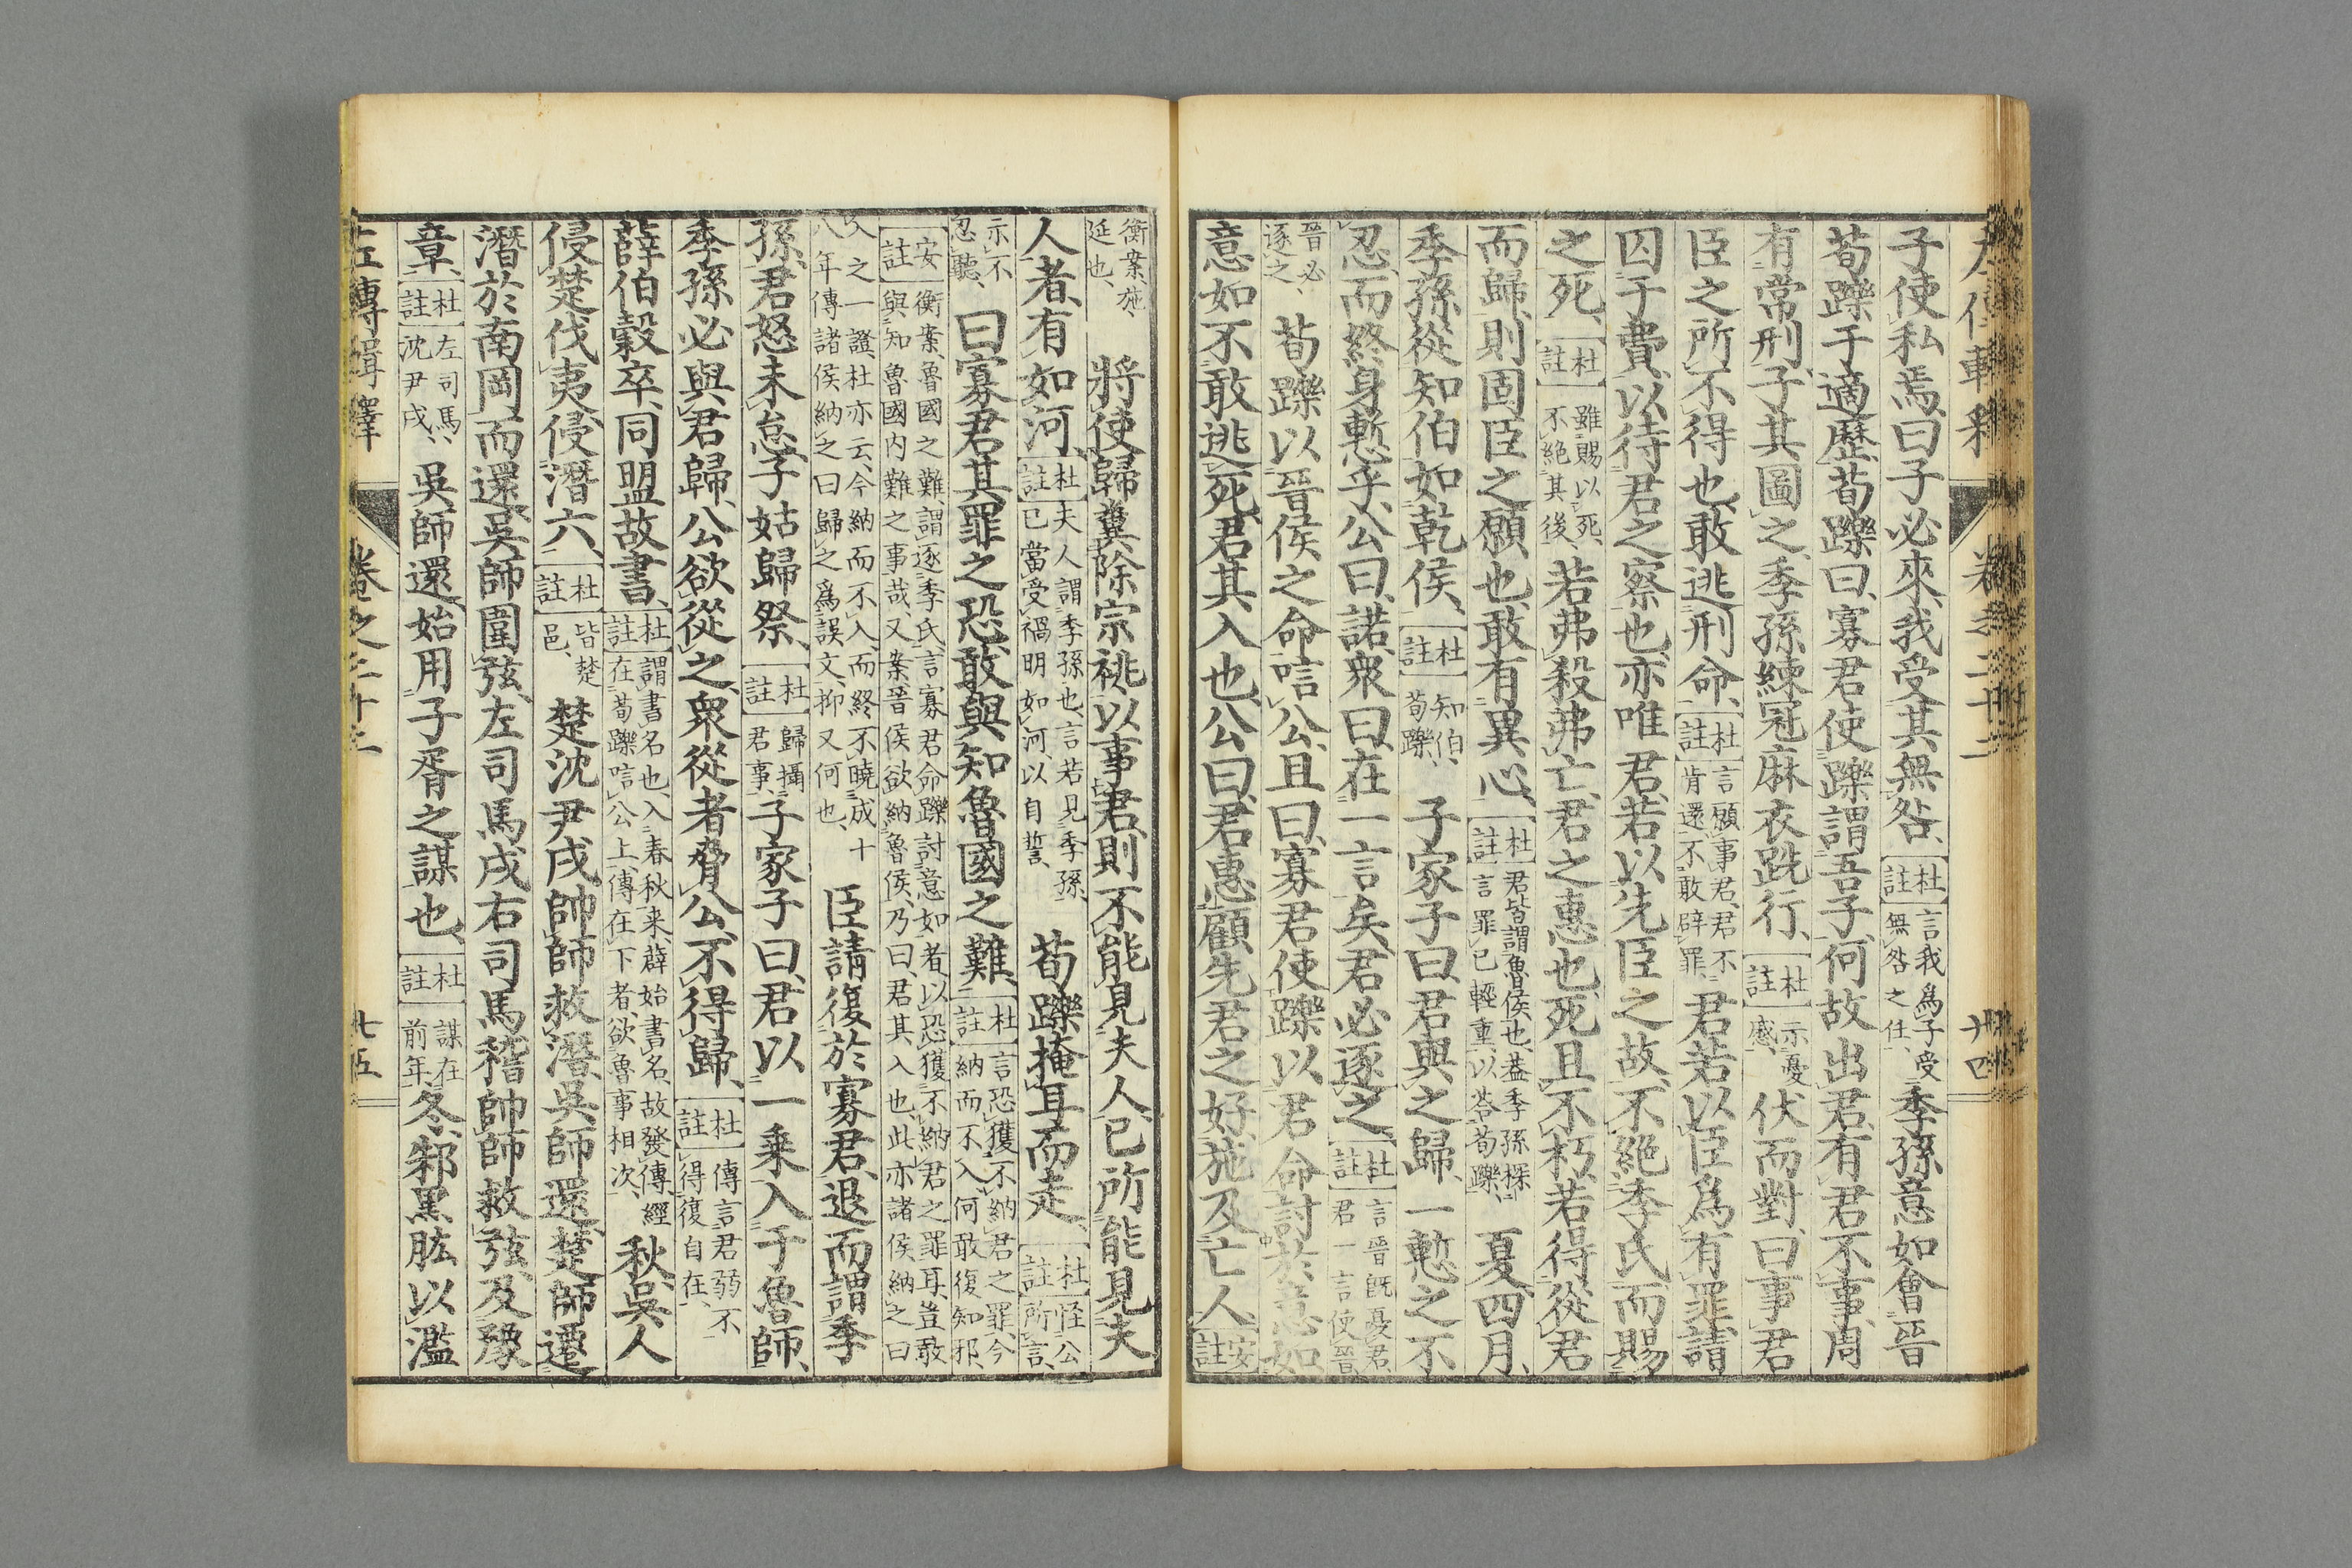 子使私焉曰子必來我受其無咎、杜註言我爲子受無咎之任、季孫意如會晉
荀躒于適歷荀躒曰寡君使躒謂吾子何故出君有君不事周
有常刑子其圖之季孫練冠麻衣跣行、杜註示憂慼、伏而對曰事君
臣之所不得也敢逃刑命、杜註言願事君君不肯還不敢辟罪、君若以臣爲有罪請
囚于費以待君之察也亦唯君若以先臣之故不絕季氏而賜
之死、杜註雖賜以死、不絕其後、若弗殺弗亡君之惠也死且不朽若得從君
而歸則固臣之願也敢有異心、杜註君皆謂魯侯也、蓋季孫探言罪己輕重、以荅荀躒、夏四月
季孫從知伯如乾侯、杜註知伯、荀躒、子家子曰君與之歸、一慙之不
忍而終身慙乎公曰諾衆曰在一言矣君必逐之、杜註言晉旣憂君君一言使晉
晉必逐之、荀躒以晉侯之命唁公且曰寡君使躒以君命討於意如
意如不敢逃死君其入也公曰君惠顧先君之好施及亡人、安註
衡案、施、延也、將使歸糞除宗祧以事君則不能見夫人已所能見夫
人者有如河、杜註夫人謂季孫也、言若見季孫、已當受禍明如河、以自誓、荀躒掩耳而走、杜註怪公所言、
示不忍聽、曰寡君其罪之恐敢與知魯國之難、杜註言恐獲不納君之罪、今納而不入、何敢復知邪、
安註衡案、魯國之難、謂逐季氏、言寡君命躒討意如者、以恐獲不納君之罪耳、豈敢與知魯國内難之事哉、又案、晉侯欲納魯侯、乃曰、君其入也、此亦諸侯納之曰
入之一證、杜亦云、今納而不入、而終不曉成十八年傳諸侯納之曰歸之爲誤文、抑又何也、臣請復於寡君退而謂季
孫君怒未怠子姑歸祭、杜註歸攝君事、子家子曰君以一乘入于魯師、
季孫必與君歸公欲從之衆從者脅公不得歸、杜註傳言君弱不得復自在、
薛伯穀卒同盟故書、杜註謂書名也、入春秋來薛始書名、故發傳、經在荀躒唁公上、傳在下者、欲魯事相次、秋吳人
侵楚伐夷侵潛六、杜註皆楚邑、楚沈尹戌帥師救潛吳師還楚師遷
潛於南岡而還吳師圍弦左司馬戌右司馬稽帥師救弦及豫
章、杜註左司馬、沈尹戌、吳師還始用子胥之謀也、杜註謀在前年、冬邾黑肱以濫
左傳輯釋　卷之二十二　廿五